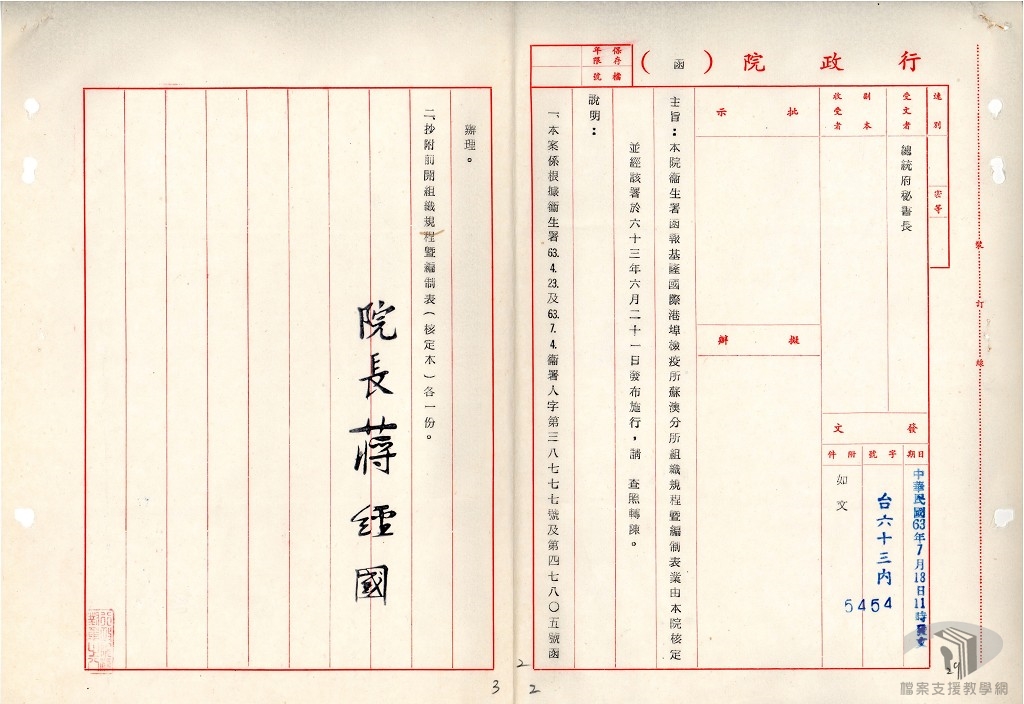 行政院（函）
保存年限
檔號
速別
密等
受文者
總統府秘書長
副本收受者
發文
日期
中華民國63年7月18日11時發文
字號
台六十三內
5454
附件
如文
批示
擬辦
裝訂線
主旨：本院衞生署函報基隆國際港埠檢疫所蘇澳分所組織規程暨編制表業由本院核定
並經該署於六十三年六月二十一日發布施行，請　查照轉陳。
說明：
一、本案係根據衞生署63.4.23.及63.7.4.衞署人字第三八七七七號及第四七八〇五號函
辦理。
二、抄附前開組織規程暨編制表（核定本）各一份。
院長蔣經國
2
2
3
檔案支援教學網